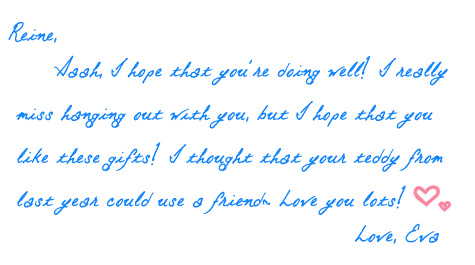 Reine,
Aaah, I hope that you're doing well! I really
miss hanging out with you, but I hope that you
like these gifts! I thought that your teddy from
last year could use a friend~ Love you lots!
Love, Eva